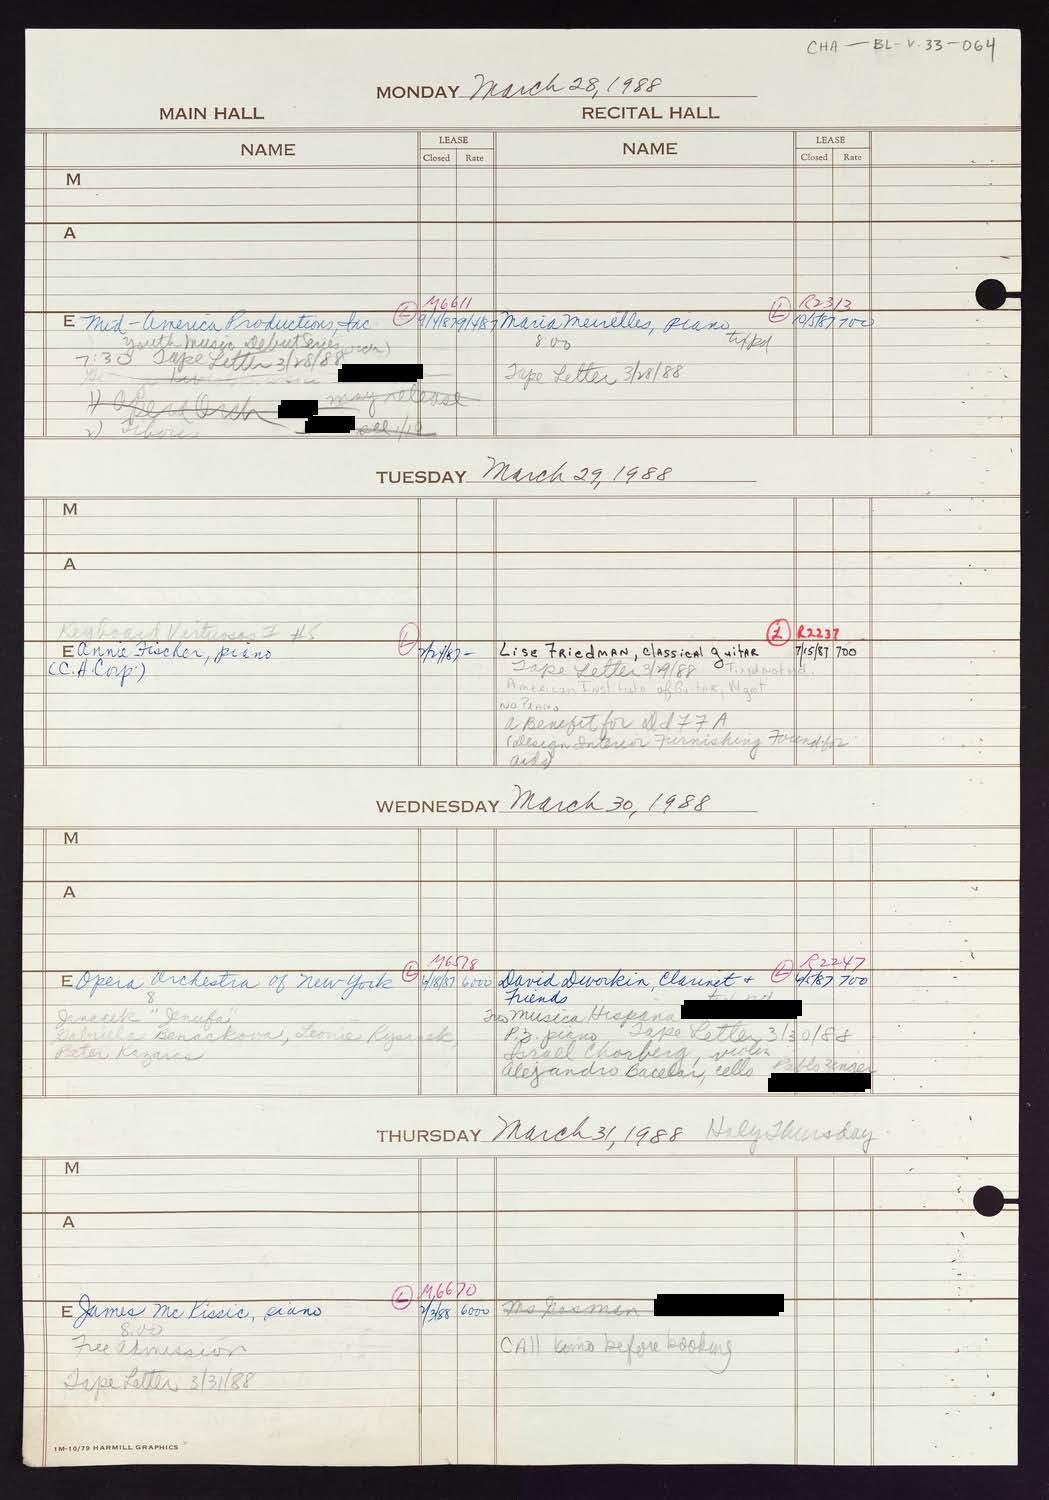 CHA - BL - V. 33 - 064
MONDAY March 28, 1988
MAIN HALL
RECITAL HALL
NAME
LEASE
Closed Rate
NAME
LEASE
Closed Rate
M
A
M6611
E Mid-America Productions, Inc L 9/4/87 9/4/87
Youth Music Debut Series
7:30 Tape Letter 3/28/88
1) Orch may release
2) see 1/12
R2313
Maria Meirelles, piano L 10/5/87 700
8:00
Tape Letter 3/28/88
TUESDAY March 29, 1988
M
A
Keyboard Virtuosos I #5
E Annie Fischer, piano L 2/24/87 -
(C.H. Corp.)
L R2237
Lise Friedman, classical guitar 7/15/87 700
Tape Letter 3/29/88
American Institute of Guitar, Mgmt
No Piano
a Benefit for DIFFA
(design Interior Furnishing Found for
aids)
WEDNESDAY March 30, 1988
M
A
M6578
E Opera Orchestra of New York L 6/18/87 6000
8
Janacek "Jenufa"
Gabriela Benackova, Leonie Rysanek,
Peter Kazaras
R2247
David Dworkin, Clarinet + L 700
Friends
Musica Hispana
piano Tape Letter 3/30/88
Israel Chorberg, violin
Alejandro Bacelar, cello Pablo Zinger
THURSDAY March 31, 1988 Holy Thursday
M
A
M6670
E James McKissic, piano L 2/3/88 6000
8:00
Free Admission
Tape Letter 3/31/88
Ms Gosman
Call before booking
1M-10/79 HARMILL GRAPHICS